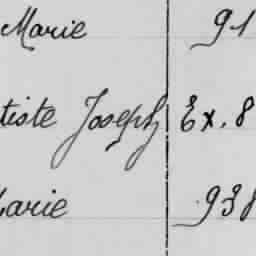 Marie 91
tiste Joseph Ex. 8
Marie 938